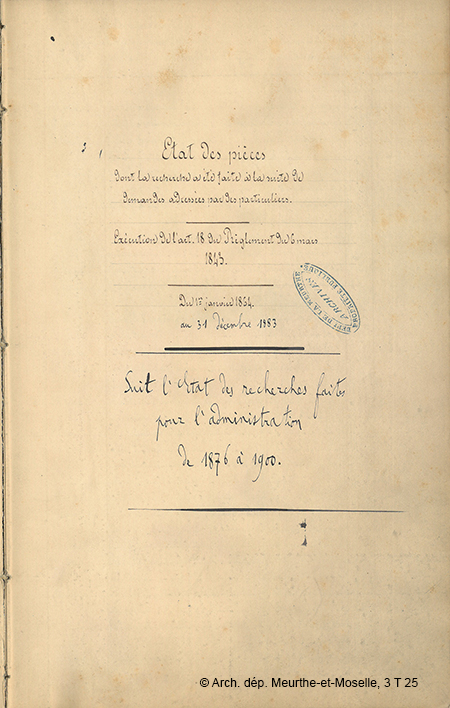 Etat des pièces
dont la recherche a été faite à la suite de
demandes adressées par des particuliers.
Exécution de l'art. 18 du Règlement du 6 mars
1843.
Du 1er janvier 1854
au 31 décembre 1883
PROPRIÉTÉ PUBLIQUE
DEPT. DE LA MEURTHE
ARCHIVES
Suit l'Etat des recherches faites
pour l'administration
de 1876 à 1900.
© Arch. dép. Meurthe-et-Moselle, 3 T 25